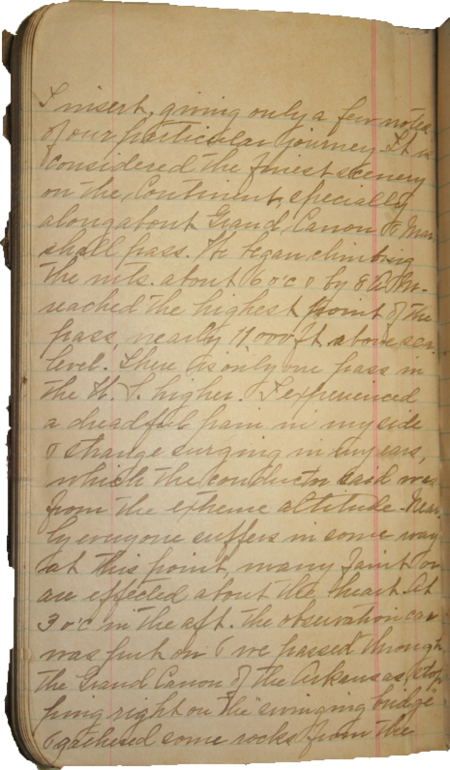 I insert, giving only a few notes
of our particular journey. It is
considered the finest scenery
on the Continent, specially
along about Grand Canon & Mar-
shall pass. We began climbing
the mts. about 6 o'c & by 8 A.M.
reached the highest point of the
pass, nearly 11000 ft above sea
level. There is only one pass in
the U. S. higher. I experienced
a dreadful pain in my side
& strange surging in my ears,
which the conductor said was
from the extreme altitude. Near-
ly everyone suffers in some way
at this point, many faint or
are effected about the heart. At
3 o'c in the aft. the observation car
was put on & we passed through
the Grand Canon of the Arkansas, stop-
ping right on the "swinging bridge"
& gathered some rocks from the